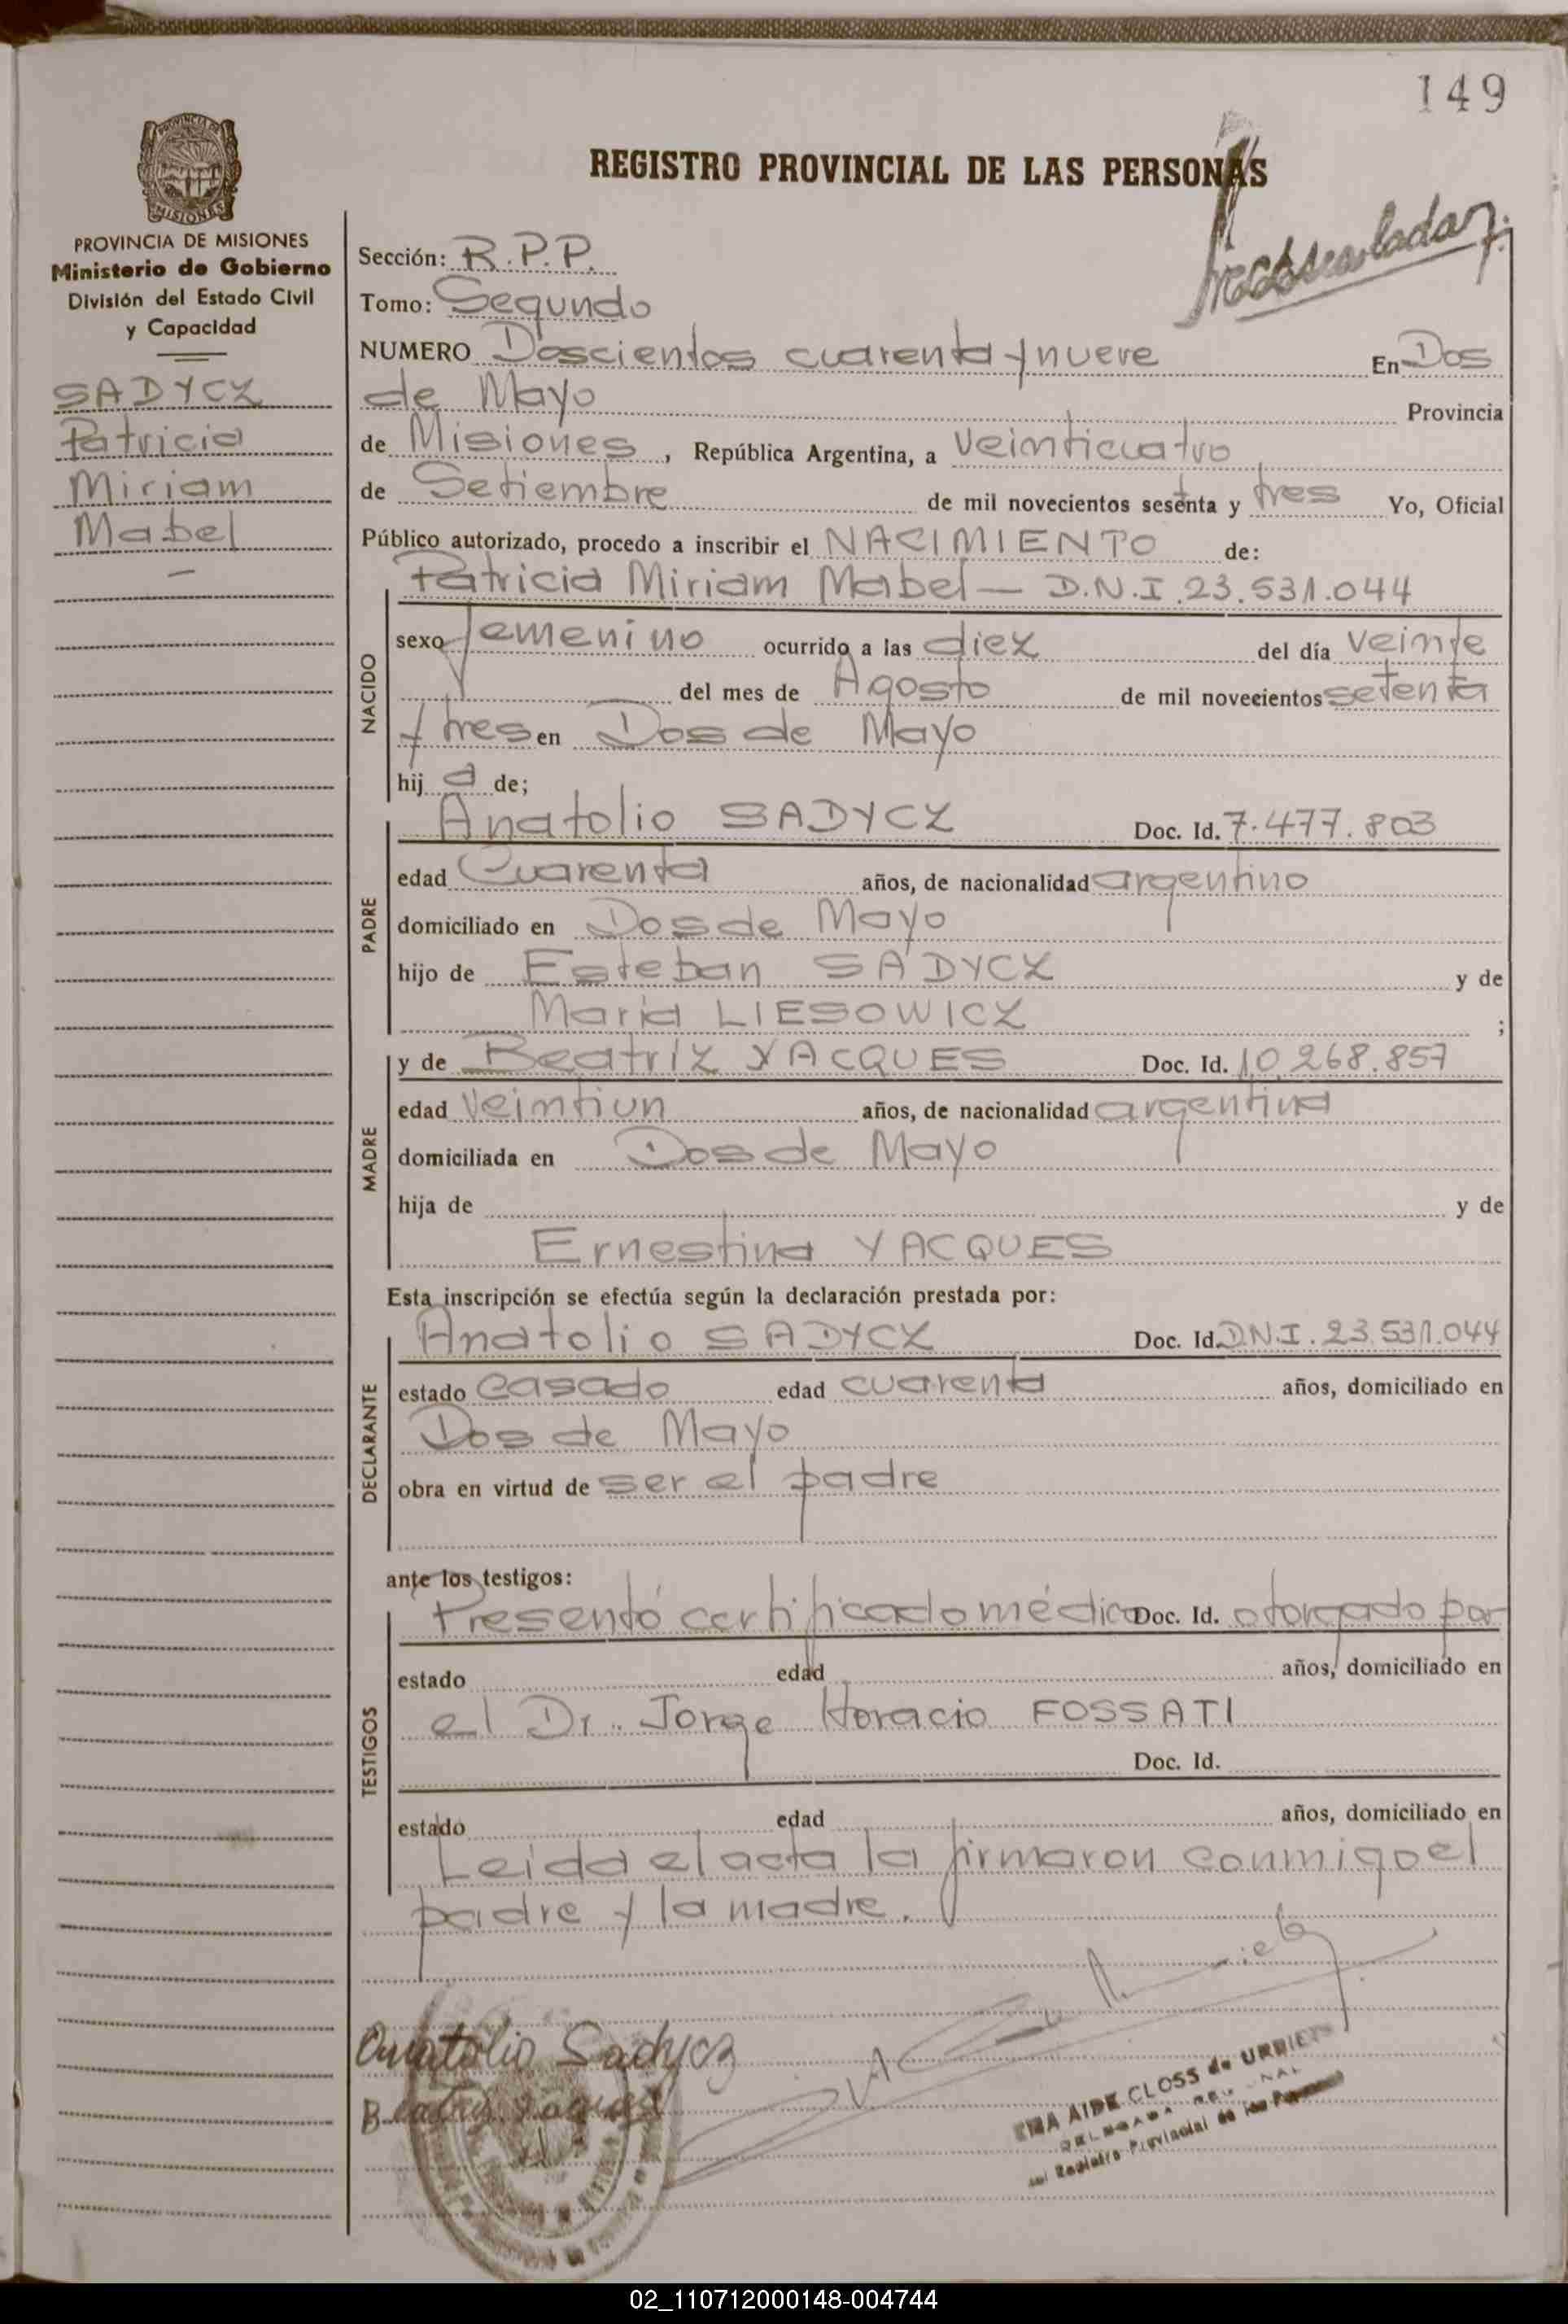 149
REGISTRO PROVINCIAL DE LAS PERSONAS
PROVINCIA DE MISIONES
Ministerio de Gobierno
División del Estado Civil
y Capacidad
SADYCZ
Patricia
Miriam
Mabel
Sección: R.P.P.
Tomo: Segundo
NUMERO Doscientos cuarenta y nueve En Dos
de Mayo Provincia
de Misiones, República Argentina, a veinticuatro
de Setiembre de mil novecientos sesenta y tres Yo, Oficial
Público autorizado, procedo a inscribir el NACIMIENTO de:
NACIDO
Patricia Miriam Mabel — D.N.I. 23.531.044
sexo femenino ocurrido a las diez del día veinte
del mes de Agosto de mil novecientos setenta
y tres en Dos de Mayo
hij a de;
PADRE
Anatolio SADYCZ Doc. Id. 7.477.803
edad Cuarenta años, de nacionalidad argentino
domiciliado en Dos de Mayo
hijo de Esteban SADYCZ y de
María LIESOWICZ ;
MADRE
y de Beatríz YACQUES Doc. Id. 10.268.857
edad veintiun años, de nacionalidad argentina
domiciliada en Dos de Mayo
hija de y de
Ernestina YACQUES
Esta inscripción se efectúa según la declaración prestada por:
DECLARANTE
Anatolio SADYCZ Doc. Id. D.N.I. 23.531.044
estado casado edad cuarenta años, domiciliado en
Dos de Mayo
obra en virtud de ser el padre
ante los testigos:
TESTIGOS
Presentó certificado médico Doc. Id. otorgado por
estado edad años, domiciliado en
el Dr. Jorge Horacio FOSSATI
Doc. Id.
estado edad años, domiciliado en
Leida el acta la firmaron conmigo el
padre y la madre.
Anatolio Sadycz
AIDE CLOSS de
Registro Provincial de las
02_110712000148-004744